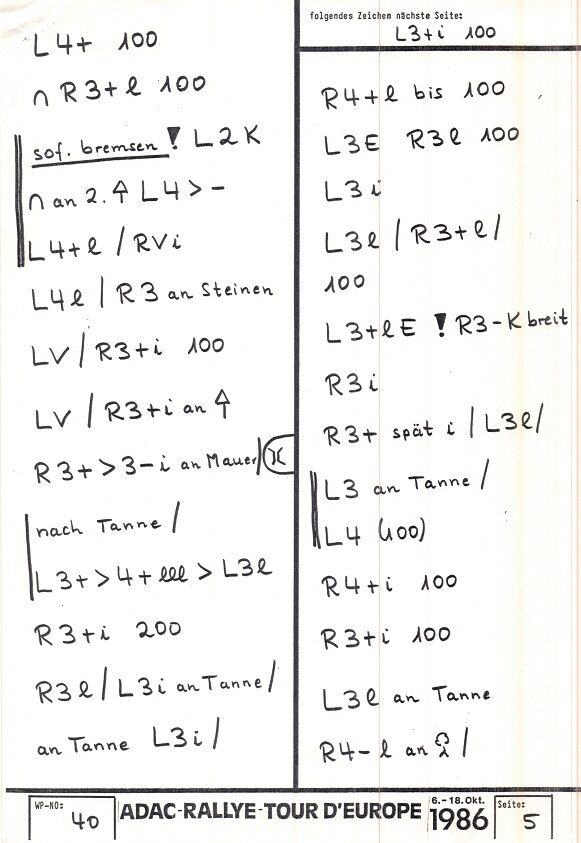 L4+ 100
∩ R3+l 100
sof. bremsen ! L2K
∩ an 2. ↑ L4 > -
L4+l / RVi
L4l / R3 an Steinen
LV / R3+i 100
LV / R3+i an ↑
R3+ > 3-i an Mauer / )(
nach Tanne /
L3+ > 4+lll > L3l
R3+i 200
R3l / L3i an Tanne /
an Tanne L3i /
folgendes Zeichen nächste Seite:
L3+i 100
R4+l bis 100
L3E R3l 100
L3i
L3l / R3+l /
100
L3+lE ! R3-K breit
R3i
R3+ spät i / L3l /
L3 an Tanne /
L4 (100)
R4+i 100
R3+i 100
L3l an Tanne
R4-l an /
WP-NO: 40
ADAC-RALLYE-TOUR D'EUROPE
6.-18.Okt.
1986
Seite: 5